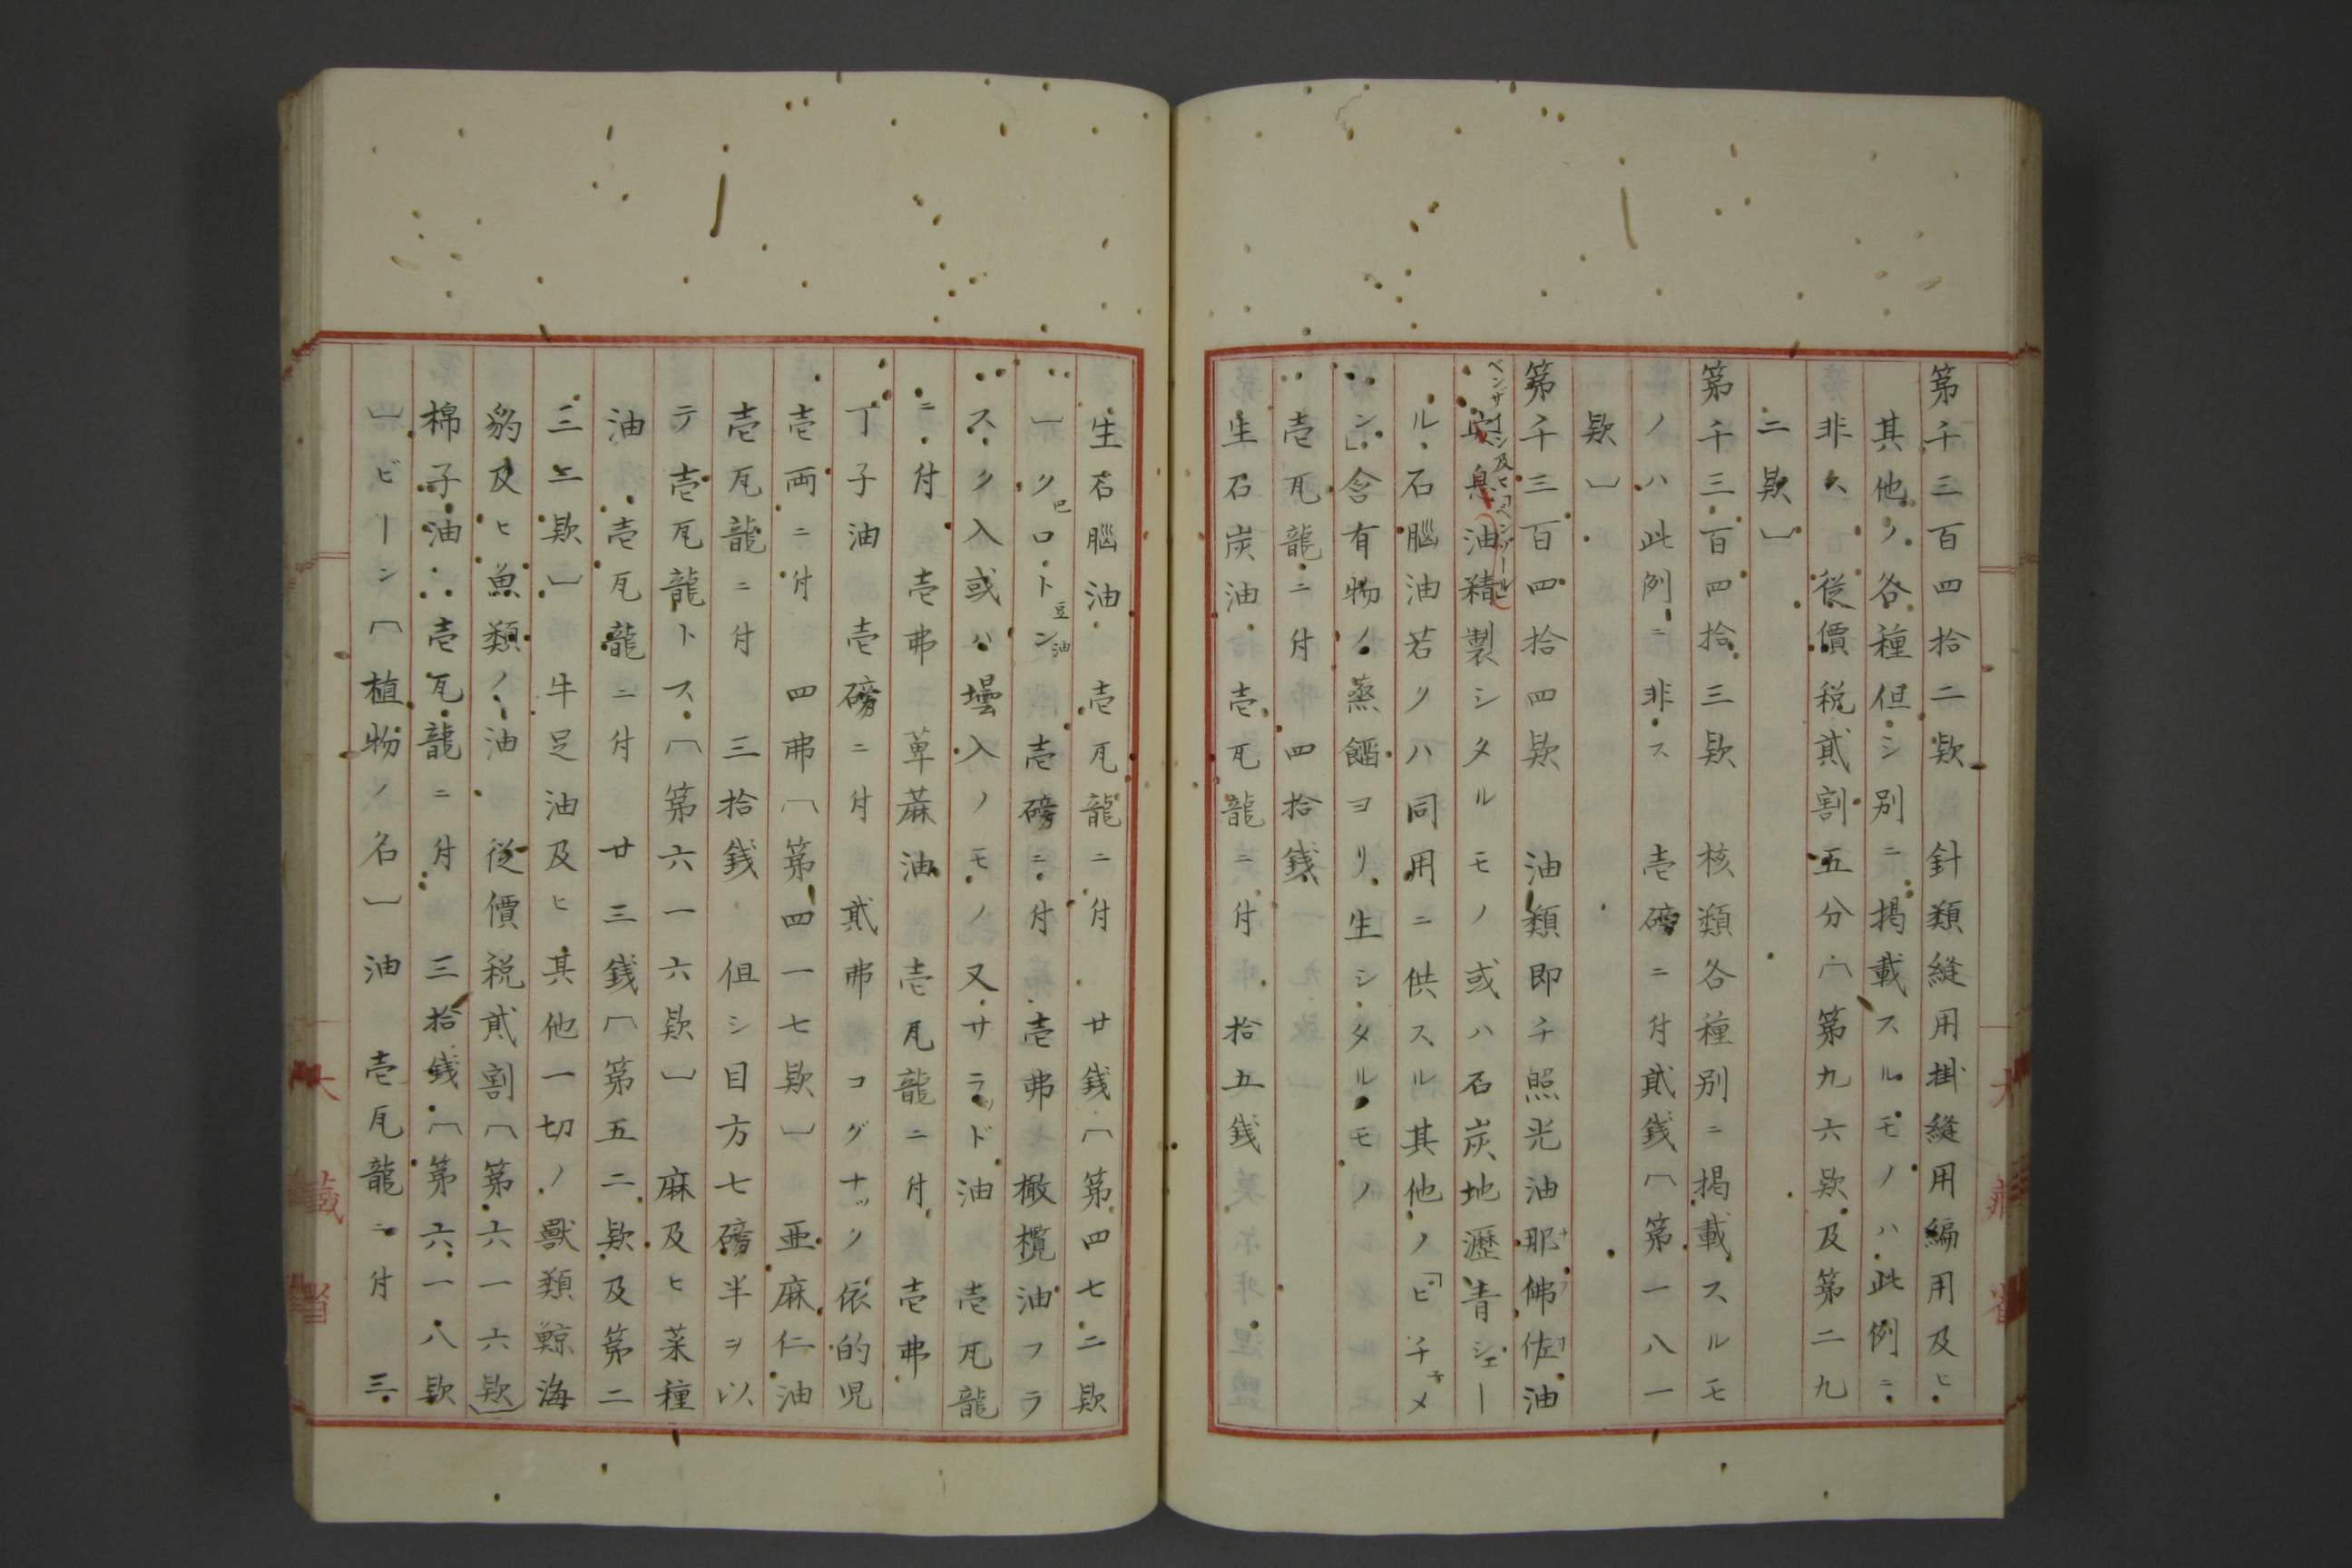 第千三百四拾二欵　針類縫用掛縫用編用及ヒ
其他ノ各種但シ別ニ掲載スルモノハ此例ニ
非ス　従價税貳割五分〔第九六欵及第二九
二欵〕
第千三百四拾三欵　核類各種別ニ掲載スルモ
ノハ此例ニ非ス　壱磅ニ付貳銭〔第一八一
欵〕
第千三百四拾四欵　油類即チ照光油那佛佐油
ベンザイン及ヒ「ベンゾール」
油精製シタルモノ或ハ石炭地瀝青シエー
ル石腦油若クハ同用ニ供スル其他ノ「ビチユメ
ン」含有物ノ蒸餾ヨリ生シタルモノ
壱瓦龍ニ付四拾銭
生石炭油　壱瓦龍ニ付　拾五銭
生石腦油　壱瓦龍ニ付　廿銭〔第四七二欵
〕クロトン油　壱磅ニ付　壱弗　橄欖油フラ
巴豆油
スク入或ハ壜入ノモノ又サラッド油　壱瓦龍
ニ付　壱弗　草蔴油　壱瓦龍ニ付　壱弗
丁子油　壱磅ニ付　貳弗　コグナック依的児
壱両ニ付　四弗〔第四一七欵〕　亜麻仁油
壱瓦龍ニ付　三拾銭　但シ目方七磅半ヲ以
テ壱瓦龍トス〔第六一六欵〕　麻及ヒ菜種
油　壱瓦龍ニ付　廿三銭〔第五二欵及第二
三三欵〕　牛足油及ヒ其他一切ノ獸類鯨海
豹及ヒ魚類ノ油　従價税貳割〔第六一六欵〕
棉子油　壱瓦龍ニ付　三拾銭〔第六一八欵
〕ビーン〔植物ノ名〕油　壱瓦龍ニ付　三
大藏省